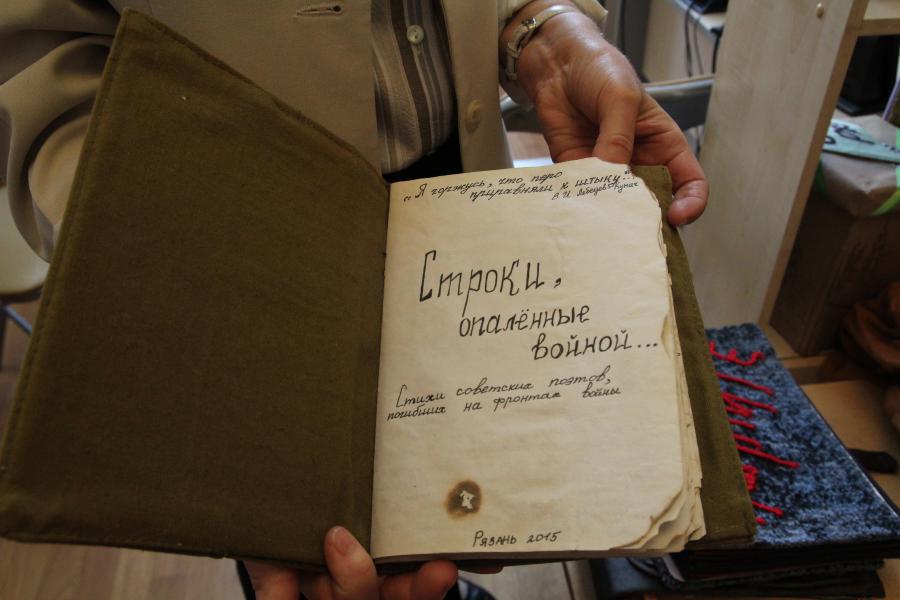 „Я горжусь, что перо
приравняли к штыку..."
В.И. Лебедев-Кумач
Строки,
опалённые
войной...
Стихи советских поэтов,
погибших на фронтах войны
Рязань 2015